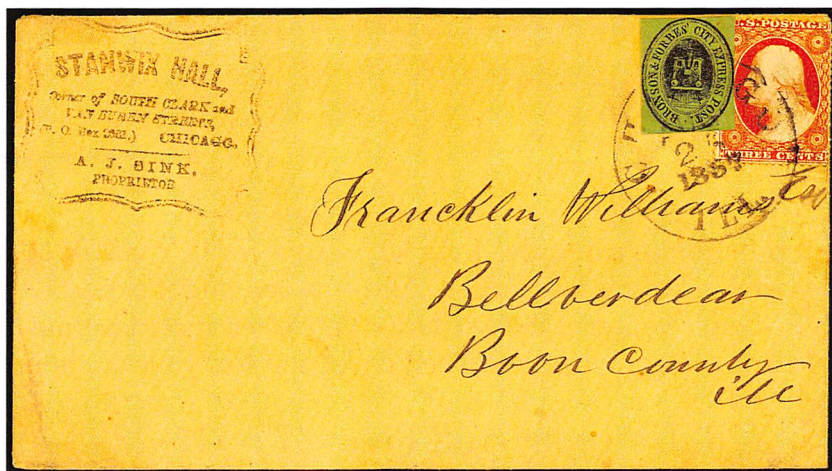 STANWIX HALL,
Corner of SOUTH CLARK and
VAN BUREN STREETS,
(P. O. Box) CHICAGO.
A. J. SINK.
PROPRIETOR
BRONSON & FORBES' CITY EXPRESS POST.
U.S. POSTAGE
THREE CENTS
ILL.
Francklin Williams Esq
Bellverdear
Boon County
ill